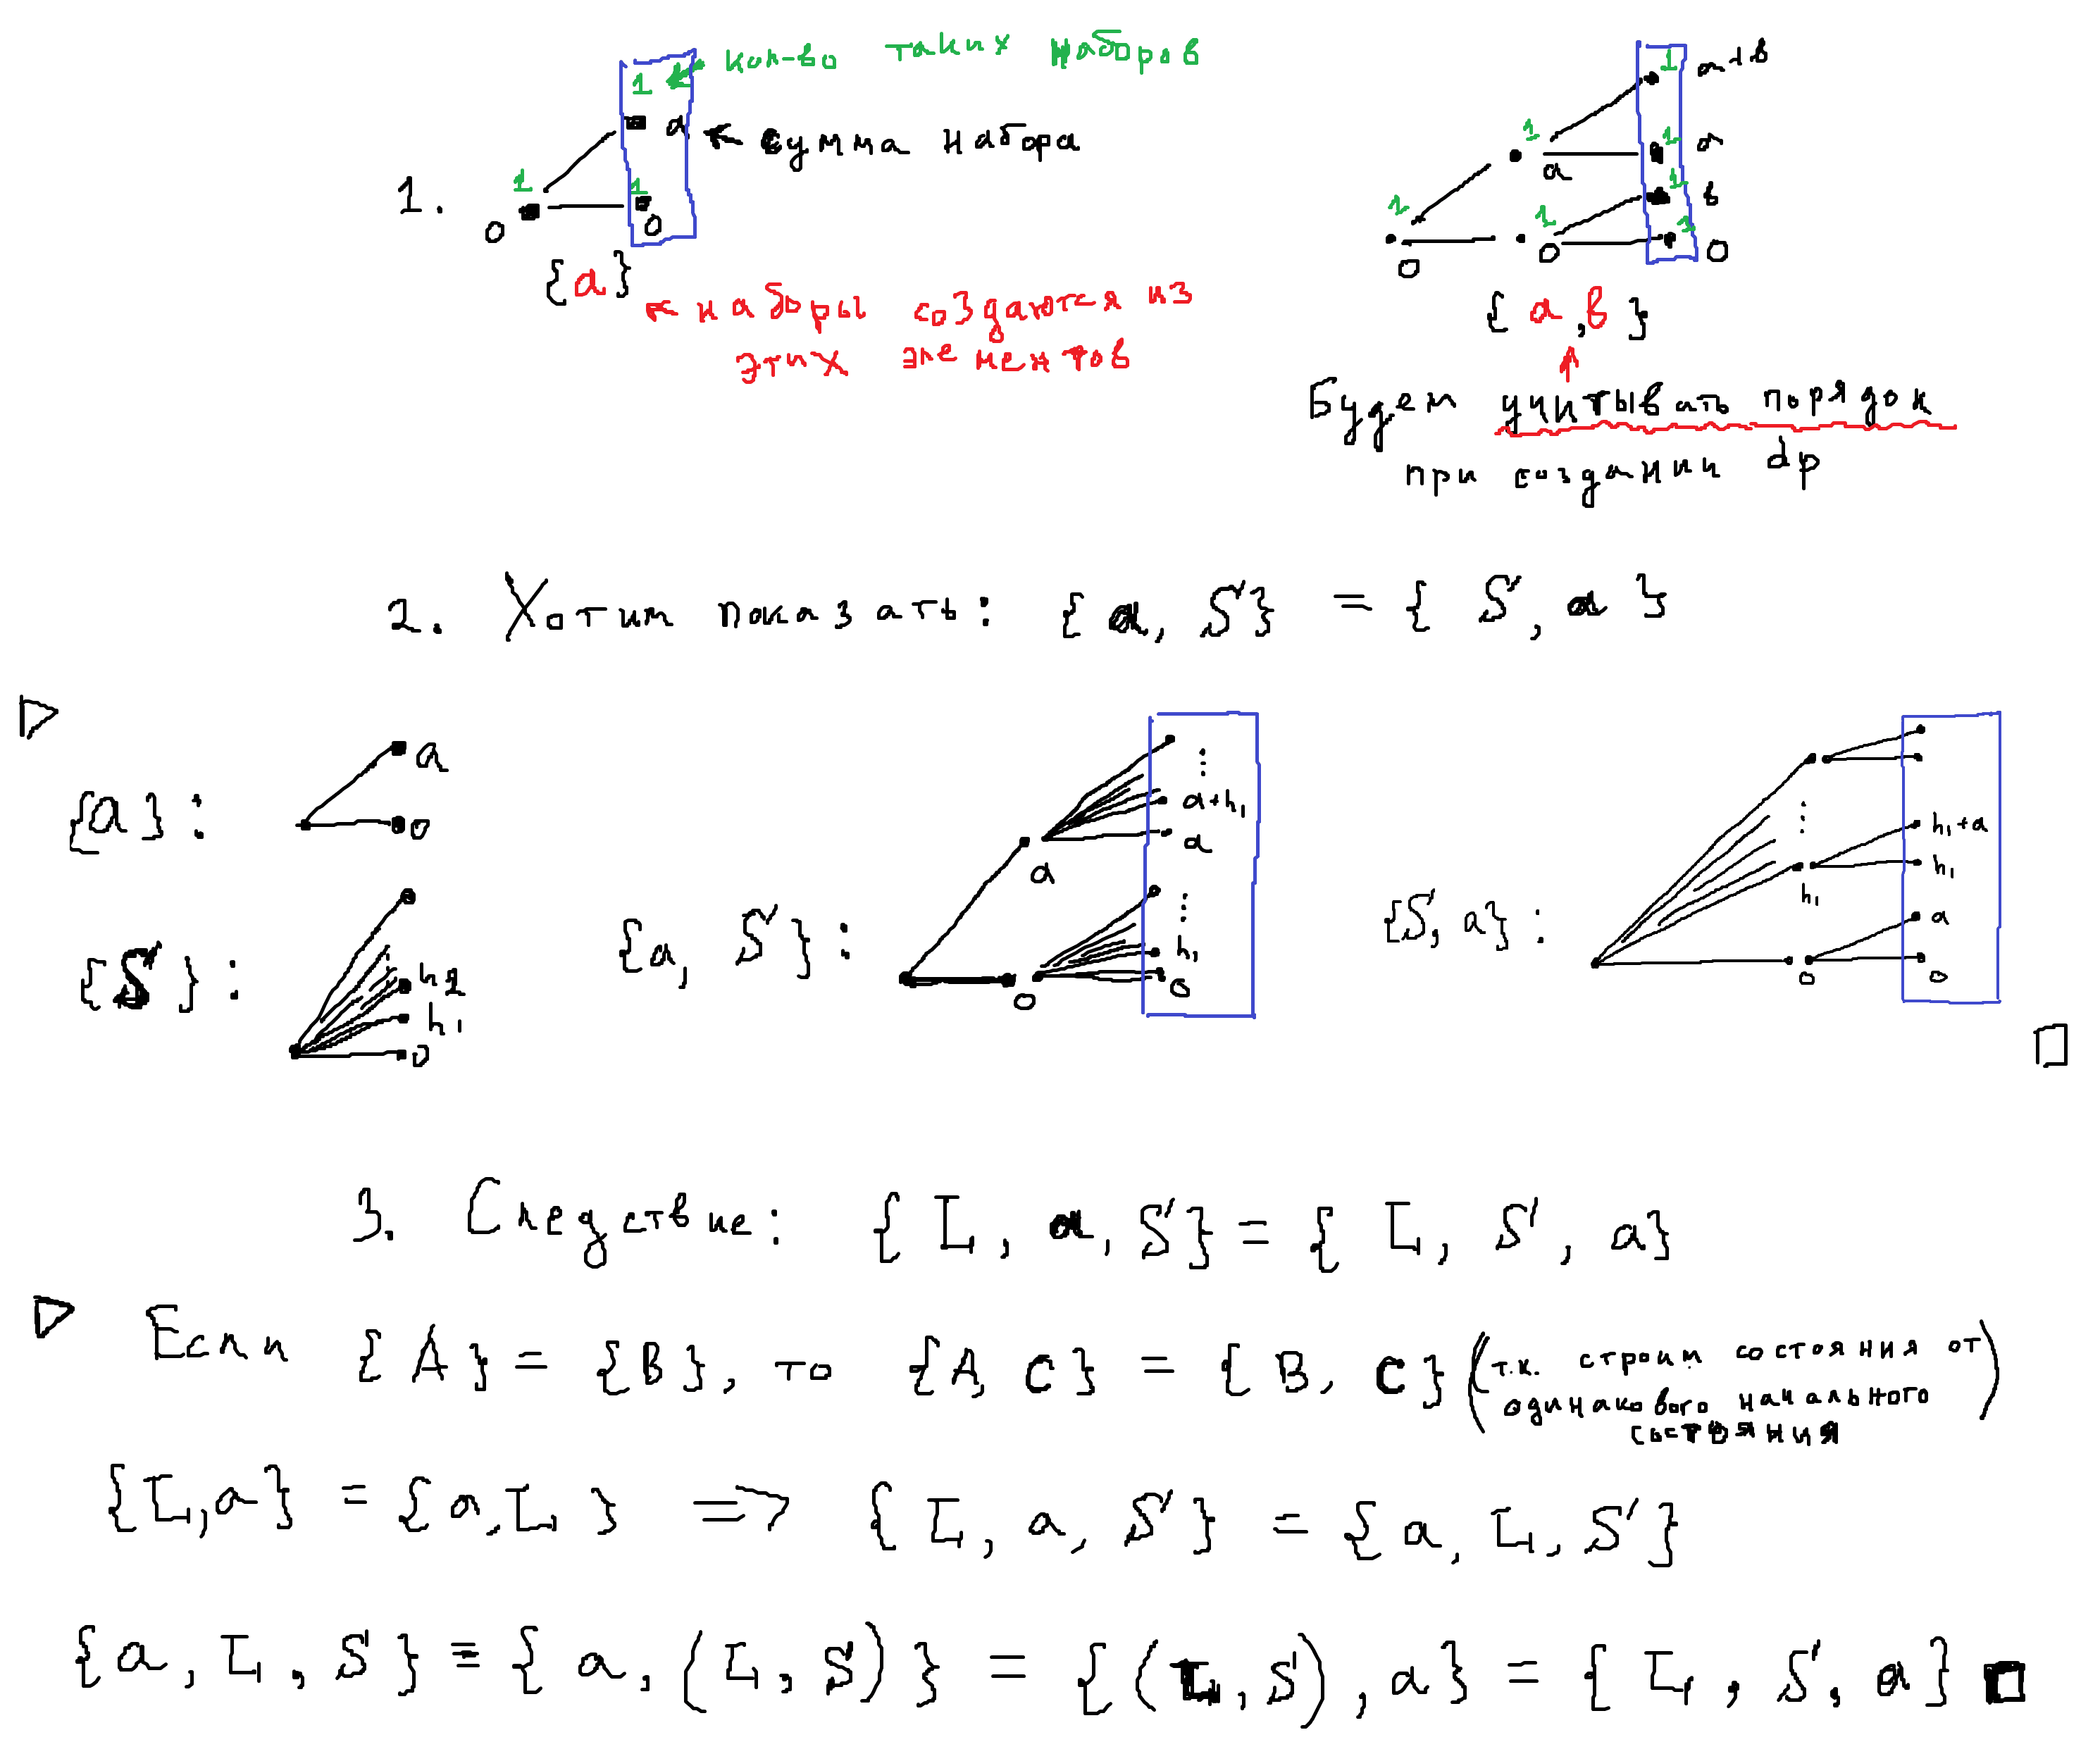 1 ← кол-во таких наборов
a ← сумма набора
1.
1
1
0
0
{a}
← наборы создаются из
этих элементов
1
a+b
1
1
a
a
1
b
1
1
1
0
0
0
{a,в}
↑
Будем учитывать порядок
при создании dp
2. Хотим показать: {a, S} = {S, a}
▷
{a}:
a
0
{S}:
h2
h1
0
{a, S}:
⋮
a+h1
a
a
⋮
h1
0
0
{S, a}:
⋮
h1+a
h1
h1
a
0
0
□
3. Следствие: {L, a, S} = {L, S, a}
▷ Если {A} = {B}, то {A, C} = {B, C} (т.к. строим состояния от
одинакового начального
состояния)
{L,a} = {a,L} => {L, a, S} = {a, L, S}
{a, L, S} = {a, (L, S)} = {(L, S), a} = {L, S, a} □